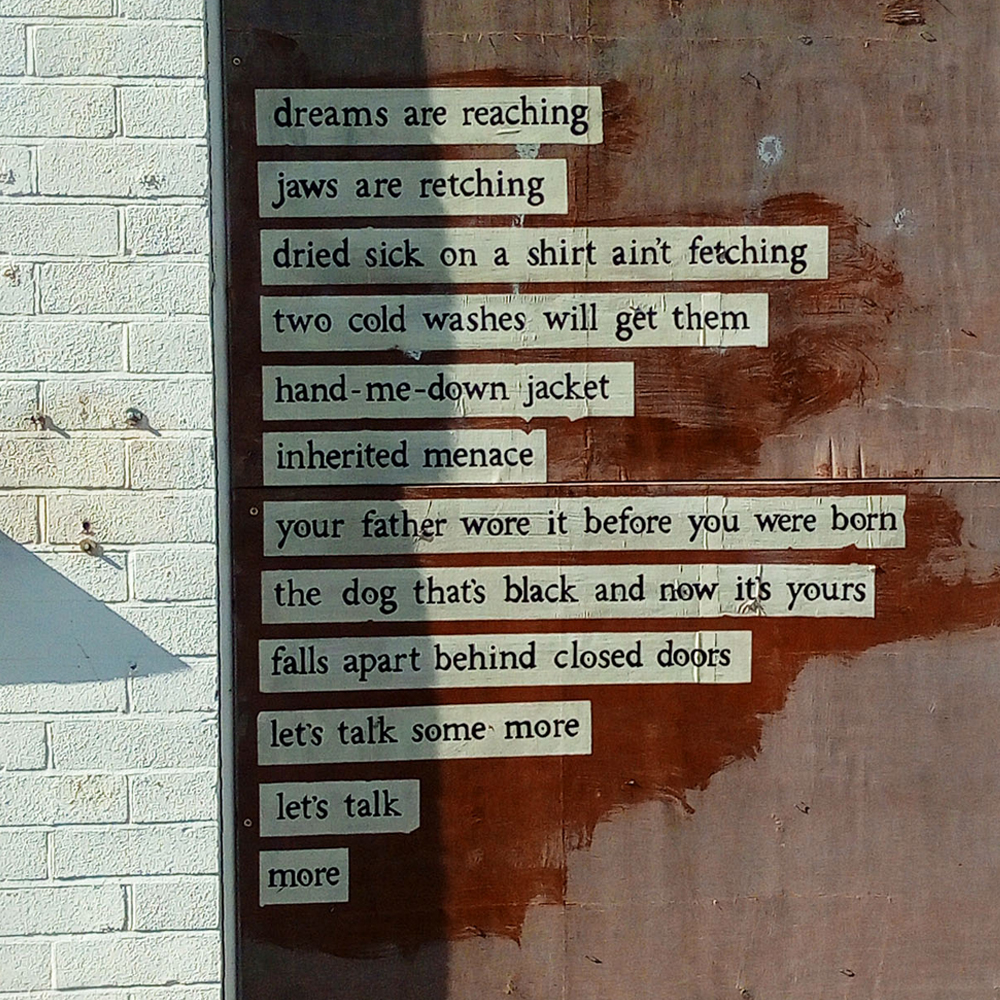 dreams are reaching
jaws are retching
dried sick on a shirt ain't fetching
two cold washes will get them
hand-me-down jacket
inherited menace
your father wore it before you were born
the dog that's black and now it's yours
falls apart behind closed doors
let's talk some more
let's talk
more